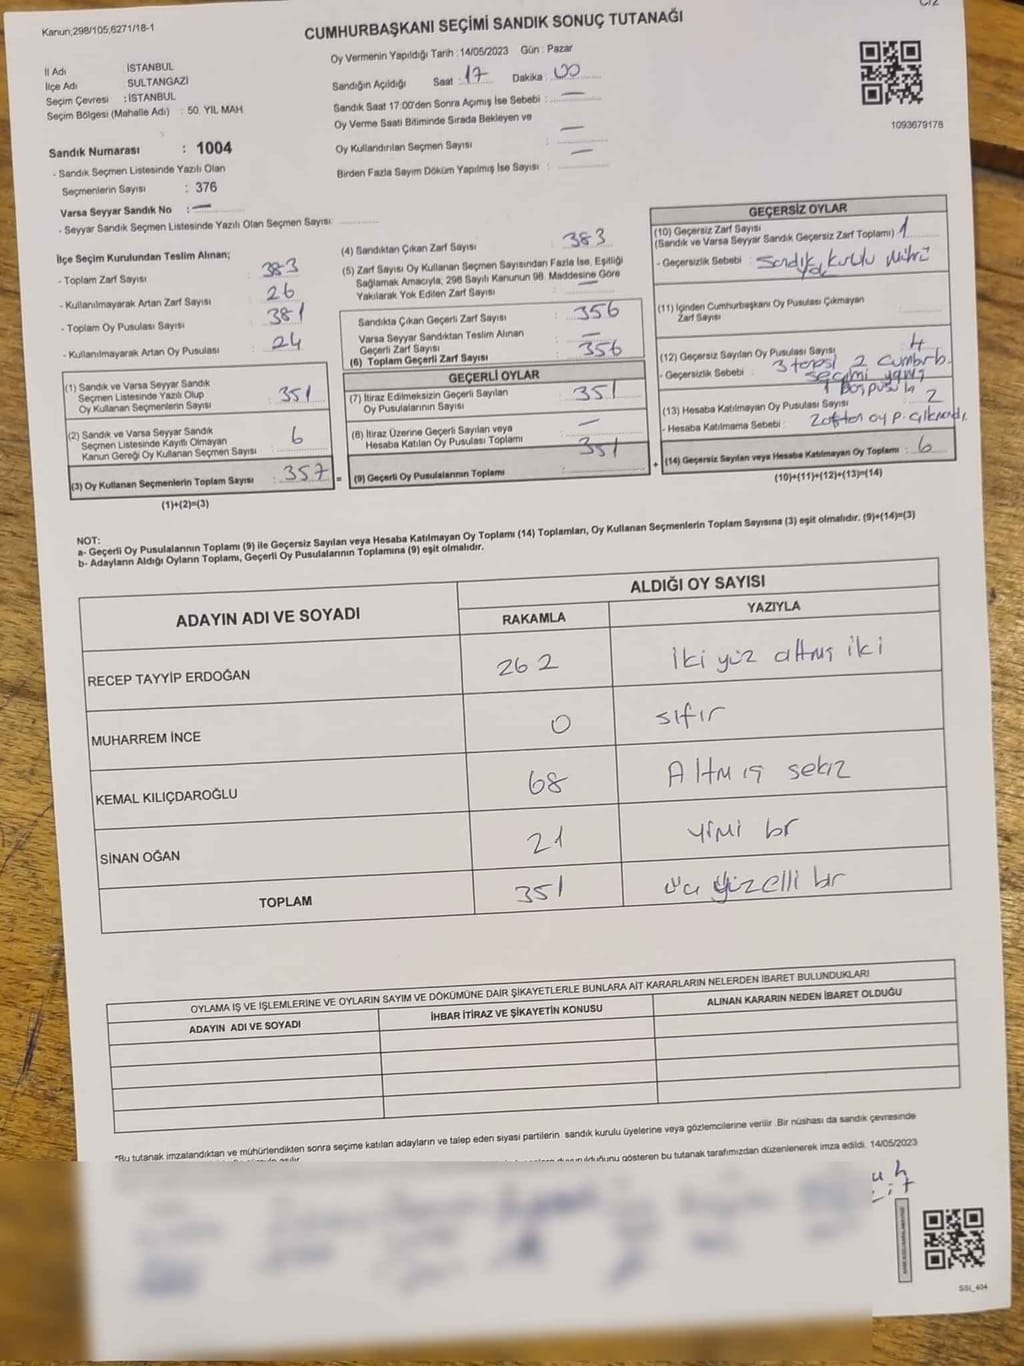 Kanun;298/105;6271/18-1
CUMHURBAŞKANI SEÇİMİ SANDIK SONUÇ TUTANAĞI
İl Adı İSTANBUL
İlçe Adı : SULTANGAZİ
Seçim Çevresi : İSTANBUL
Seçim Bölgesi (Mahalle Adı) : 50. YIL MAH
Oy Vermenin Yapıldığı Tarih : 14/05/2023 Gün : Pazar
Sandığın Açıldığı Saat : 17 Dakika : 00
Sandık Saat 17:00'den Sonra Açımış İse Sebebi : —
Oy Verme Saati Bitiminde Sırada Bekleyen ve
Oy Kullandırılan Seçmen Sayısı : —
Birden Fazla Sayım Döküm Yapılmış İse Sayısı : —
1093679178
Sandık Numarası : 1004
- Sandık Seçmen Listesinde Yazılı Olan
Seçmenlerin Sayısı : 376
Varsa Seyyar Sandık No : —
- Seyyar Sandık Seçmen Listesinde Yazılı Olan Seçmen Sayısı:
İlçe Seçim Kurulundan Teslim Alınan;
- Toplam Zarf Sayısı : 383
- Kullanılmayarak Artan Zarf Sayısı : 26
- Toplam Oy Pusulası Sayısı : 381
- Kullanılmayarak Artan Oy Pusulası : 24
(1) Sandık ve Varsa Seyyar Sandık
Seçmen Listesinde Yazılı Olup
Oy Kullanan Seçmenlerin Sayısı : 351
(2) Sandık ve Varsa Seyyar Sandık
Seçmen Listesinde Kayıtlı Olmayan
Kanun Gereği Oy Kullanan Seçmen Sayısı : 6
(3) Oy Kullanan Seçmenlerin Toplam Sayısı : 357 =
(1)+(2)=(3)
(4) Sandıktan Çıkan Zarf Sayısı : 383
(5) Zarf Sayısı Oy Kullanan Seçmen Sayısından Fazla İse, Eşitliği
Sağlamak Amacıyla; 298 Sayılı Kanunun 98. Maddesine Göre
Yakılarak Yok Edilen Zarf Sayısı : —
Sandıkta Çıkan Geçerli Zarf Sayısı : 356
Varsa Seyyar Sandıktan Teslim Alınan
Geçerli Zarf Sayısı : —
(6) Toplam Geçerli Zarf Sayısı : 356
GEÇERLİ OYLAR
(7) İtiraz Edilmeksizin Geçerli Sayılan
Oy Pusulalarının Sayısı : 351
(8) İtiraz Üzerine Geçerli Sayılan veya
Hesaba Katılan Oy Pusulası Toplamı : —
(9) Geçerli Oy Pusulalarının Toplamı : 351 +
GEÇERSİZ OYLAR
(10) Geçersiz Zarf Sayısı
(Sandık ve Varsa Seyyar Sandık Geçersiz Zarf Toplamı) 1
- Geçersizlik Sebebi : Sandık kurulu mührü
(11) İçinden Cumhurbaşkanı Oy Pusulası Çıkmayan
Zarf Sayısı
(12) Geçersiz Sayılan Oy Pusulası Sayısı : 4
- Geçersizlik Sebebi : 2 cumhrb.
seçimi
(13) Hesaba Katılmayan Oy Pusulası Sayısı : 2
- Hesaba Katılmama Sebebi : oy p. çıkmadı.
(14) Geçersiz Sayılan veya Hesaba Katılmayan Oy Toplamı : 6
(10)+(11)+(12)+(13)=(14)
NOT:
a- Geçerli Oy Pusulalarının Toplamı (9) ile Geçersiz Sayılan veya Hesaba Katılmayan Oy Toplamı (14) Toplamları, Oy Kullanan Seçmenlerin Toplam Sayısına (3) eşit olmalıdır. (9)+(14)=(3)
b- Adayların Aldığı Oyların Toplamı, Geçerli Oy Pusulalarının Toplamına (9) eşit olmalıdır.
ADAYIN ADI VE SOYADI
ALDIĞI OY SAYISI
RAKAMLA YAZIYLA
RECEP TAYYİP ERDOĞAN 262 İki yüz altmış iki
MUHARREM İNCE 0 sıfır
KEMAL KILIÇDAROĞLU 68 Altmış sekiz
SİNAN OĞAN 21 yimi br
TOPLAM 351 üç yüzelli bır
OYLAMA İŞ VE İŞLEMLERİNE VE OYLARIN SAYIM VE DÖKÜMÜNE DAİR ŞİKAYETLERLE BUNLARA AİT KARARLARIN NELERDEN İBARET BULUNDUKLARI
ADAYIN ADI VE SOYADI İHBAR İTİRAZ VE ŞİKAYETİN KONUSU ALINAN KARARIN NEDEN İBARET OLDUĞU
*Bu tutanak imzalandıktan ve mühürlendikten sonra seçime katılan adayların ve talep eden siyasi partilerin sandık kurulu üyelerine veya gözlemcilerine verilir. Bir nüshası da sandık çevresinde
gösteren bu tutanak tarafımızdan düzenlenerek imza edildi. 14/05/2023
SSI_404